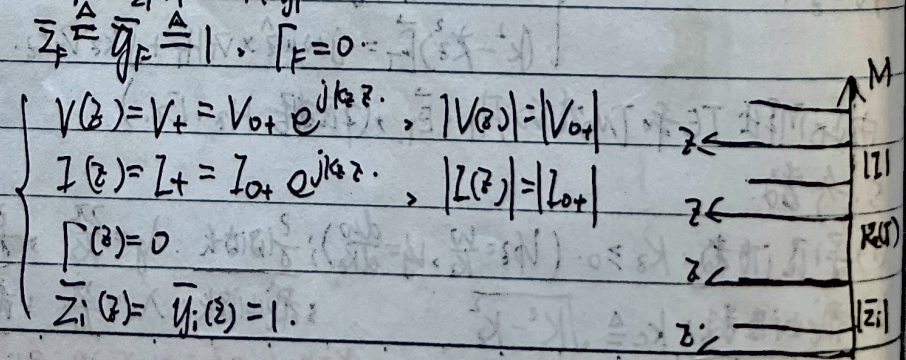 z̄_F ≜ ȳ_F ≜ 1、Γ_F=0.
V(z)=V₊=V₀₊ e^{jk_z z}. , |V(z)|=|V₀₊|
I(z)=I₊=I₀₊ e^{jk_z z}. , |I(z)|=|I₀₊|
Γ(z)=0
z̄ᵢ(z)=ȳᵢ(z)=1.
M
z
|I|
z
z
|z̄ᵢ|
z